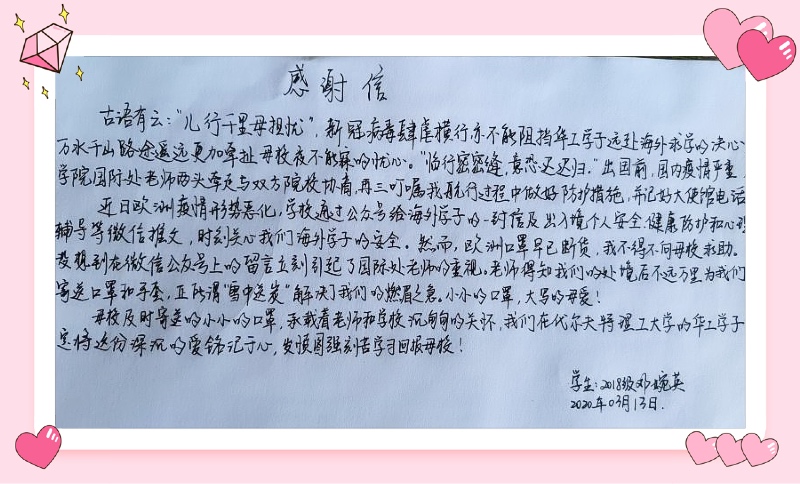 感谢信
古语有云：“儿行千里母担忧”，新冠病毒肆虐横行亦不能阻挡华工学子远赴海外求学的决心。
万水千山路途遥远更加牵扯母校夜不能寐的忧心。“临行密密缝，意恐迟迟归。”出国前，国内疫情严重，
学院国际处老师两头牵走与双方院校协商，再三叮嘱我航行过程中做好防护措施，并记好大使馆电话
近日欧洲疫情形势恶化，学校通过公众号给海外学子的一封信及出入境个人安全健康防护和心理
辅导等微信推文，时刻关心我们海外学子的安全。然而，欧洲口罩早已断货，我不得不向母校求助。
没想到在微信公众号上的留言立刻引起了国际处老师的重视。老师得知我们的处境后不远万里为我们
寄送口罩和手套，正所谓“雪中送炭”解决了我们的燃眉之急。小小的口罩，大写的母爱！
母校及时寄送的小小的口罩，承载着老师和学校沉甸甸的关怀，我们在代尔夫特理工大学的华工学子
定将这份深沉的爱铭记于心，发愤图强刻苦学习回报母校！
学生：2018级邓婉英
2020年03月13日.